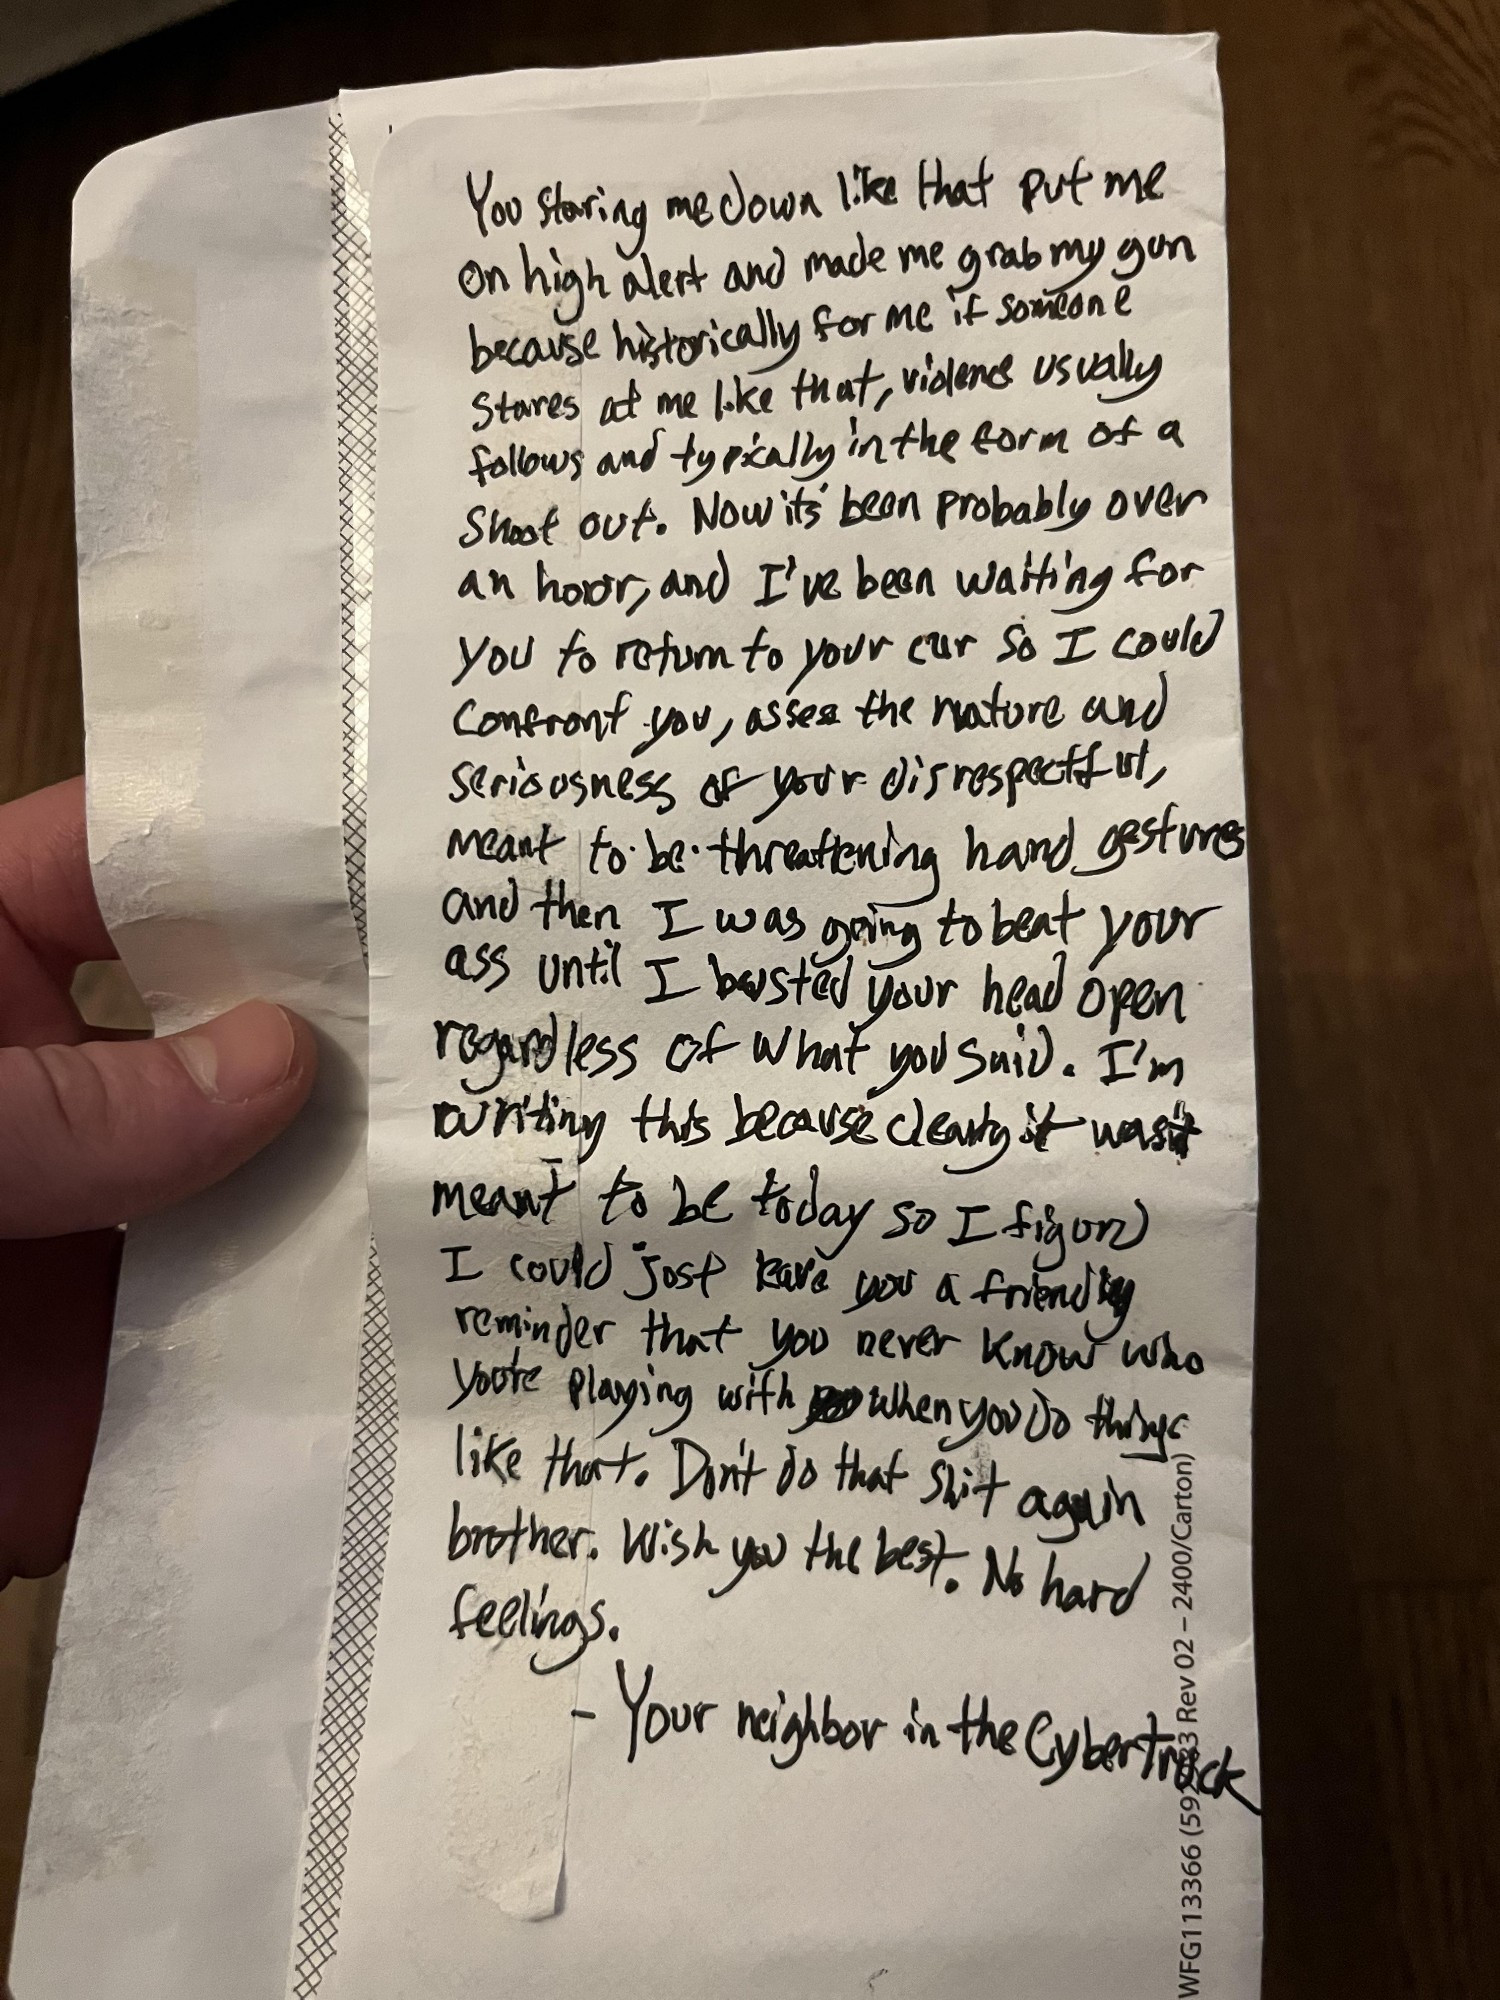 You staring me down like that put me
on high alert and made me grab my gun
because historically for me if someone
stares at me like that, violence usually
follows and typically in the form of a
shoot out. Now it's been probably over
an hour, and I've been waiting for
you to return to your car so I could
confront you, asses the nature and
seriousness of your disrespectful,
meant to be threattening hand gestures
and then I was going to beat your
ass until I busted your head open
regardless of what you said. I'm
writing this because clearly it wasn't
meant to be today so I figured
I could just leave you a friendly
reminder that you never know who
you're playing with when you do things
like that. Don't do that shit again
brother. Wish you the best. No hard
feelings.
- Your neighbor in the Cybertruck
WFG113366 (59 33 Rev 02 – 2400/Carton)